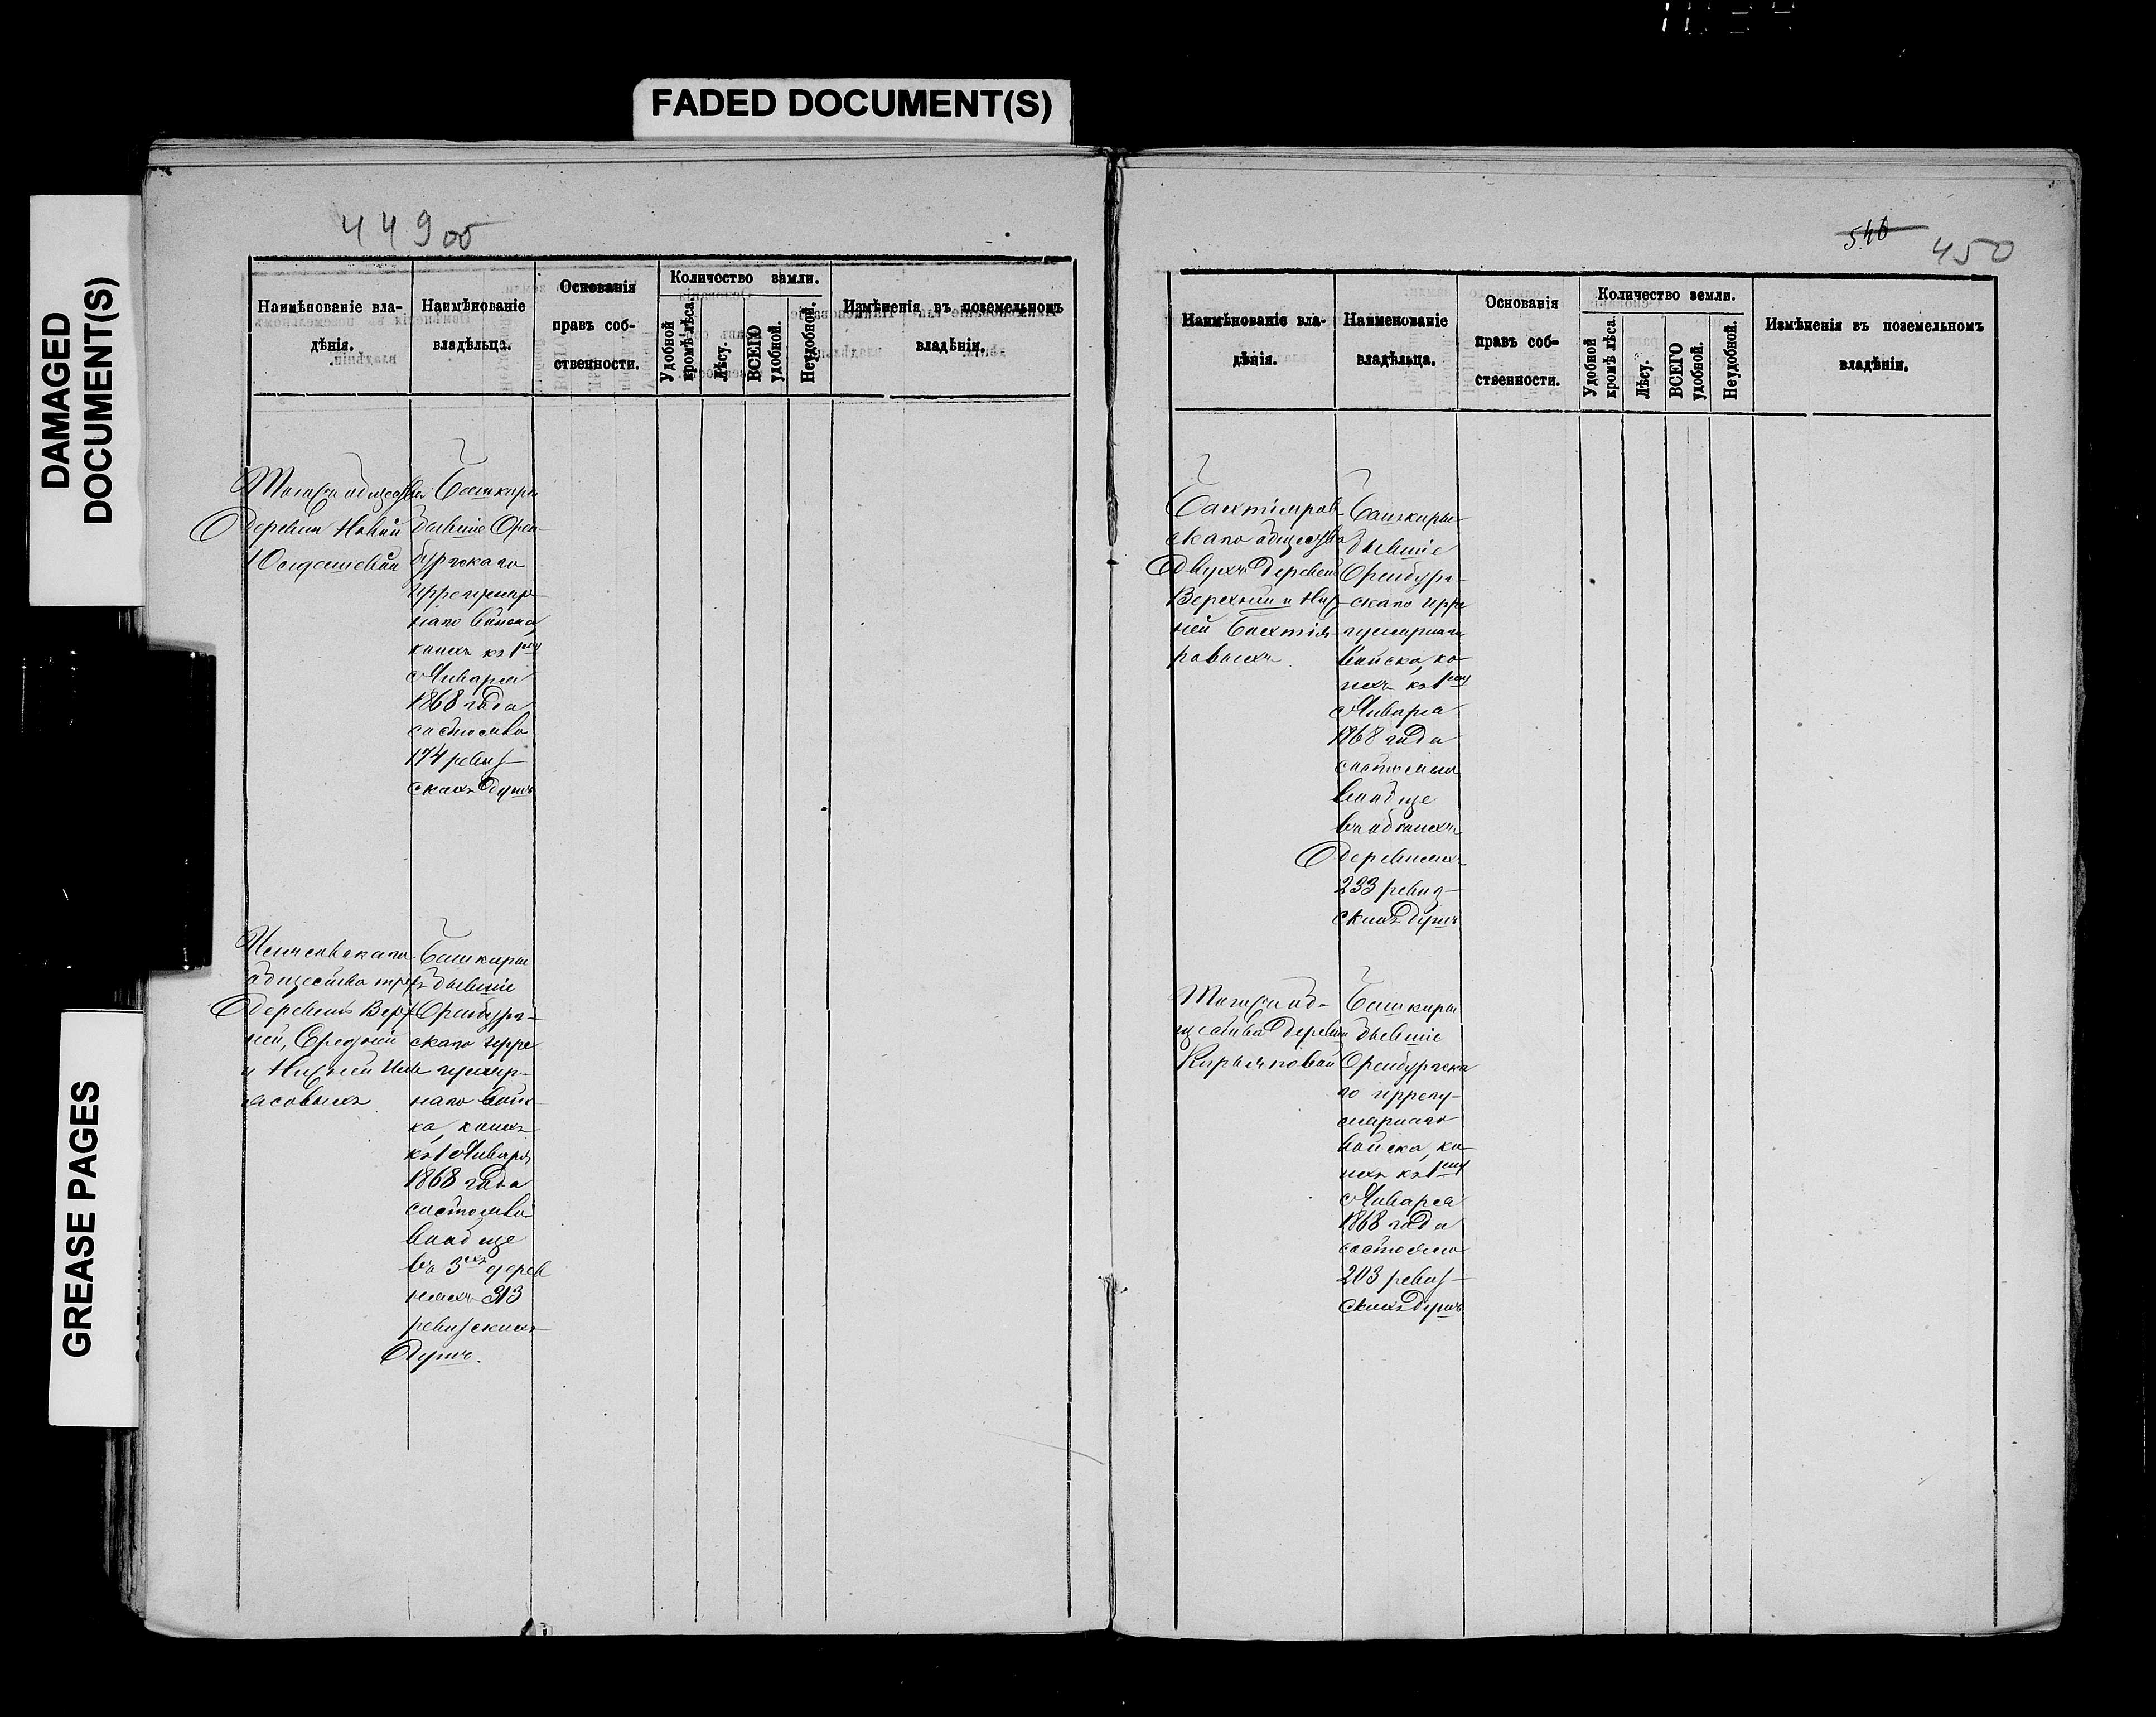 FADED DOCUMENT(S)
DAMAGED
DOCUMENT(S)
GREASE PAGES
449 об
Наимѣнованіе вла-
дѣнія.
Наимѣнованіе
владѣльца.
Основанія
правъ соб-
ственности.
Количество земли.
Удобной
кромѣ лѣса.
Лѣсу.
ВСЕГО
удобной.
Неудобной.
Измѣненія въ поземельномъ
владѣніи.
Тогоже общества
деревни Новой
Юлдашевой
Башкиры
бывшіе Орен-
бургскаго
иррегуляр-
наго войска,
коихъ къ 1му
Января
1868 года
состояло
174 ревиз-
скихъ душъ
общества трехъ
деревень Верх-
ней, Средней
и Нижней Иль-
часовыхъ
Башкиры
бывшіе
Оренбург-
скаго ирре
гуляр-
наго войс-
ка, коихъ
къ 1 Января
1868 года
состояло
вообще
въ 3хъ дерев
няхъ 313
ревизскихъ
душъ.
546
450
Наимѣнованіе вла-
дѣнія.
Наименованіе
владѣльца.
Основанія
правъ соб-
ственности.
Количество земли.
Удобной
кромѣ лѣса.
Лѣсу.
ВСЕГО
удобной.
Неудобной.
Измѣненія въ поземельномъ
владѣніи.
Бахтіяров-
скаго общества
двухъ деревень
Верхней и Ниж-
ней Бахтія-
ровыхъ.
Башкиры
бывшіе
Оренбург-
скаго ирре
гулярнаго
войска, ко-
ихъ къ 1му
Января
1868 года
состояло
вообще
въ обоихъ
деревняхъ
233 ревиз-
скихъ душъ
Тогоже об-
щества деревни
Кирыяновой
Башкиры
бывшіе
Оренбургска
го иррегу-
лярнаго
войска, ко-
ихъ къ 1му
Января
1868 года
состояло
203 ревиз-
скихъ душъ